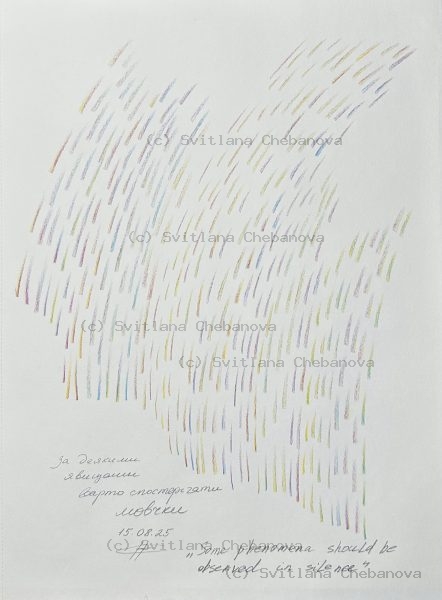 (c) Svitlana Chebanova
(c) Svitlana Chebanova
(c) Svitlana Chebanova
(c) Svitlana Chebanova
За деякими
явищами
варто спостерігати
мовчки
15.08.25
(c) Svitlana Chebanova
„Some phenomena should be
observed in silence"
(c) Svitlana Chebanova